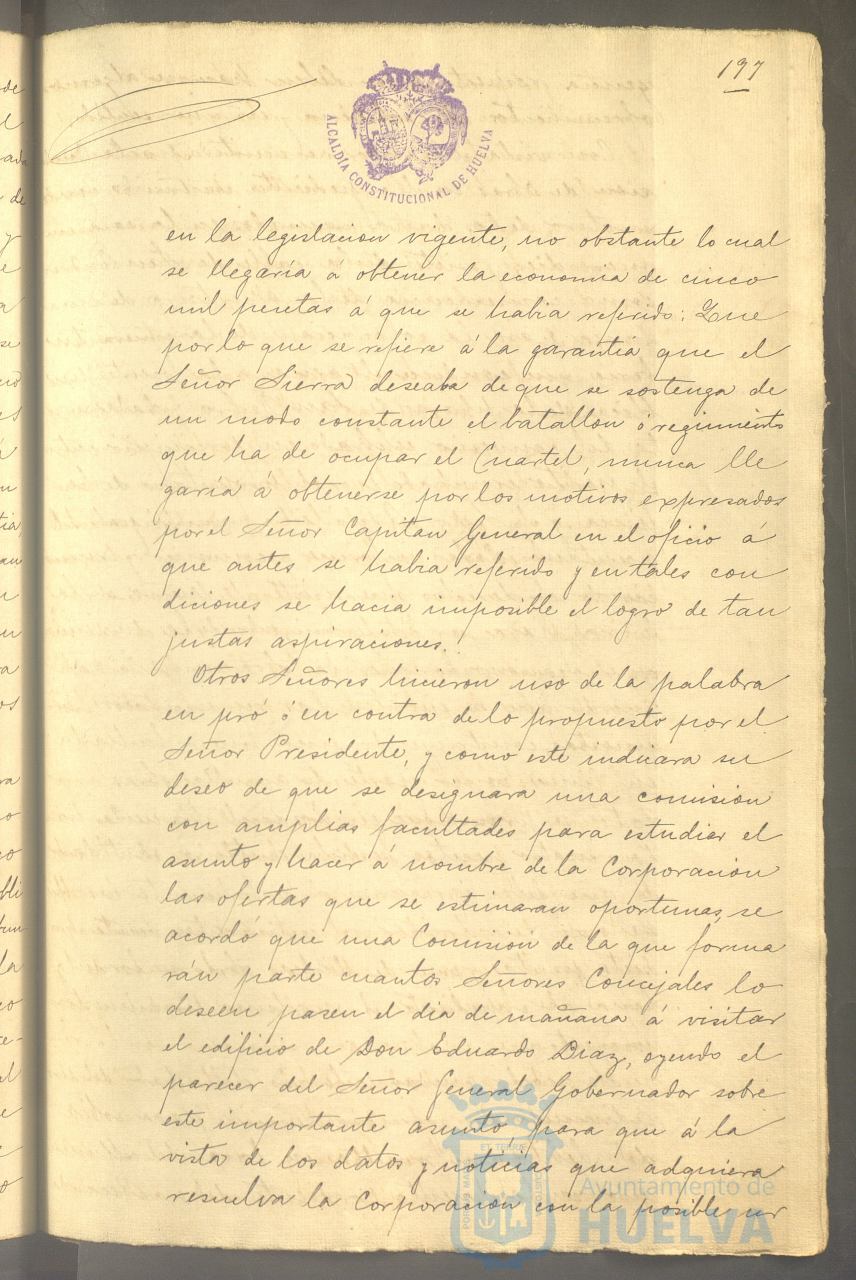 197
ALCALDÍA CONSTITUCIONAL DE HUELVA
en la legislacion vigente, no obstante lo cual
se llegaría á obtener la economia de cinco
mil pesetas á que se habia referido: Que
por lo que se refiere á la garantia que el
Señor Sierra deseaba de que se sostenga de
un modo constante el batallon ó regimiento
que ha de ocupar el Cuartel, nunca lle
garía á obtenerse por los motivos expresados
por el Señor Capitan General en el oficio á
que antes se habia referido y en tales con
diciones se hacia imposible el logro de tan
justas aspiraciones.
Otros Señores hicieron uso de la palabra
en pró ó en contra de lo propuesto por el
Señor Presidente, y como este indicara su
deseo de que se designara una comision
con amplias facultades para estudiar el
asunto y hacer á nombre de la Corporacion
las ofertas que se estimaran oportunas, se
acordó que una Comisión de la que forma
rán parte cuantos Señores Concejales lo
deseen pasen el dia de mañana á visitar
el edificio de Don Eduardo Diaz, oyendo el
parecer del Señor General Gobernador sobre
este importante asunto, para que á la
vista de los datos y noticias que adquiera
resuelva la Corporacion con la posible ur
Ayuntamiento de
HUELVA